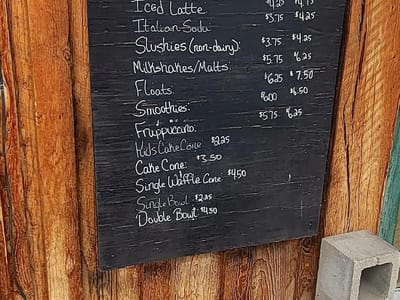 Iced Latte: $4.25 $4.75
Italian Soda: $3.75 $4.25
Slushies (non-dairy): $3.75 $4.25
Milkshakes/Malts: $5.75 $6.25
Floats: $6.25 $7.50
Smoothies: $6.00 $6.50
Frappuccino: $5.75 $6.25
Kids Cake Cone $2.25
Cake Cone: $3.50
Single Waffle Cone: $4.50
Single Bowl: $2.25
Double Bowl: $4.50